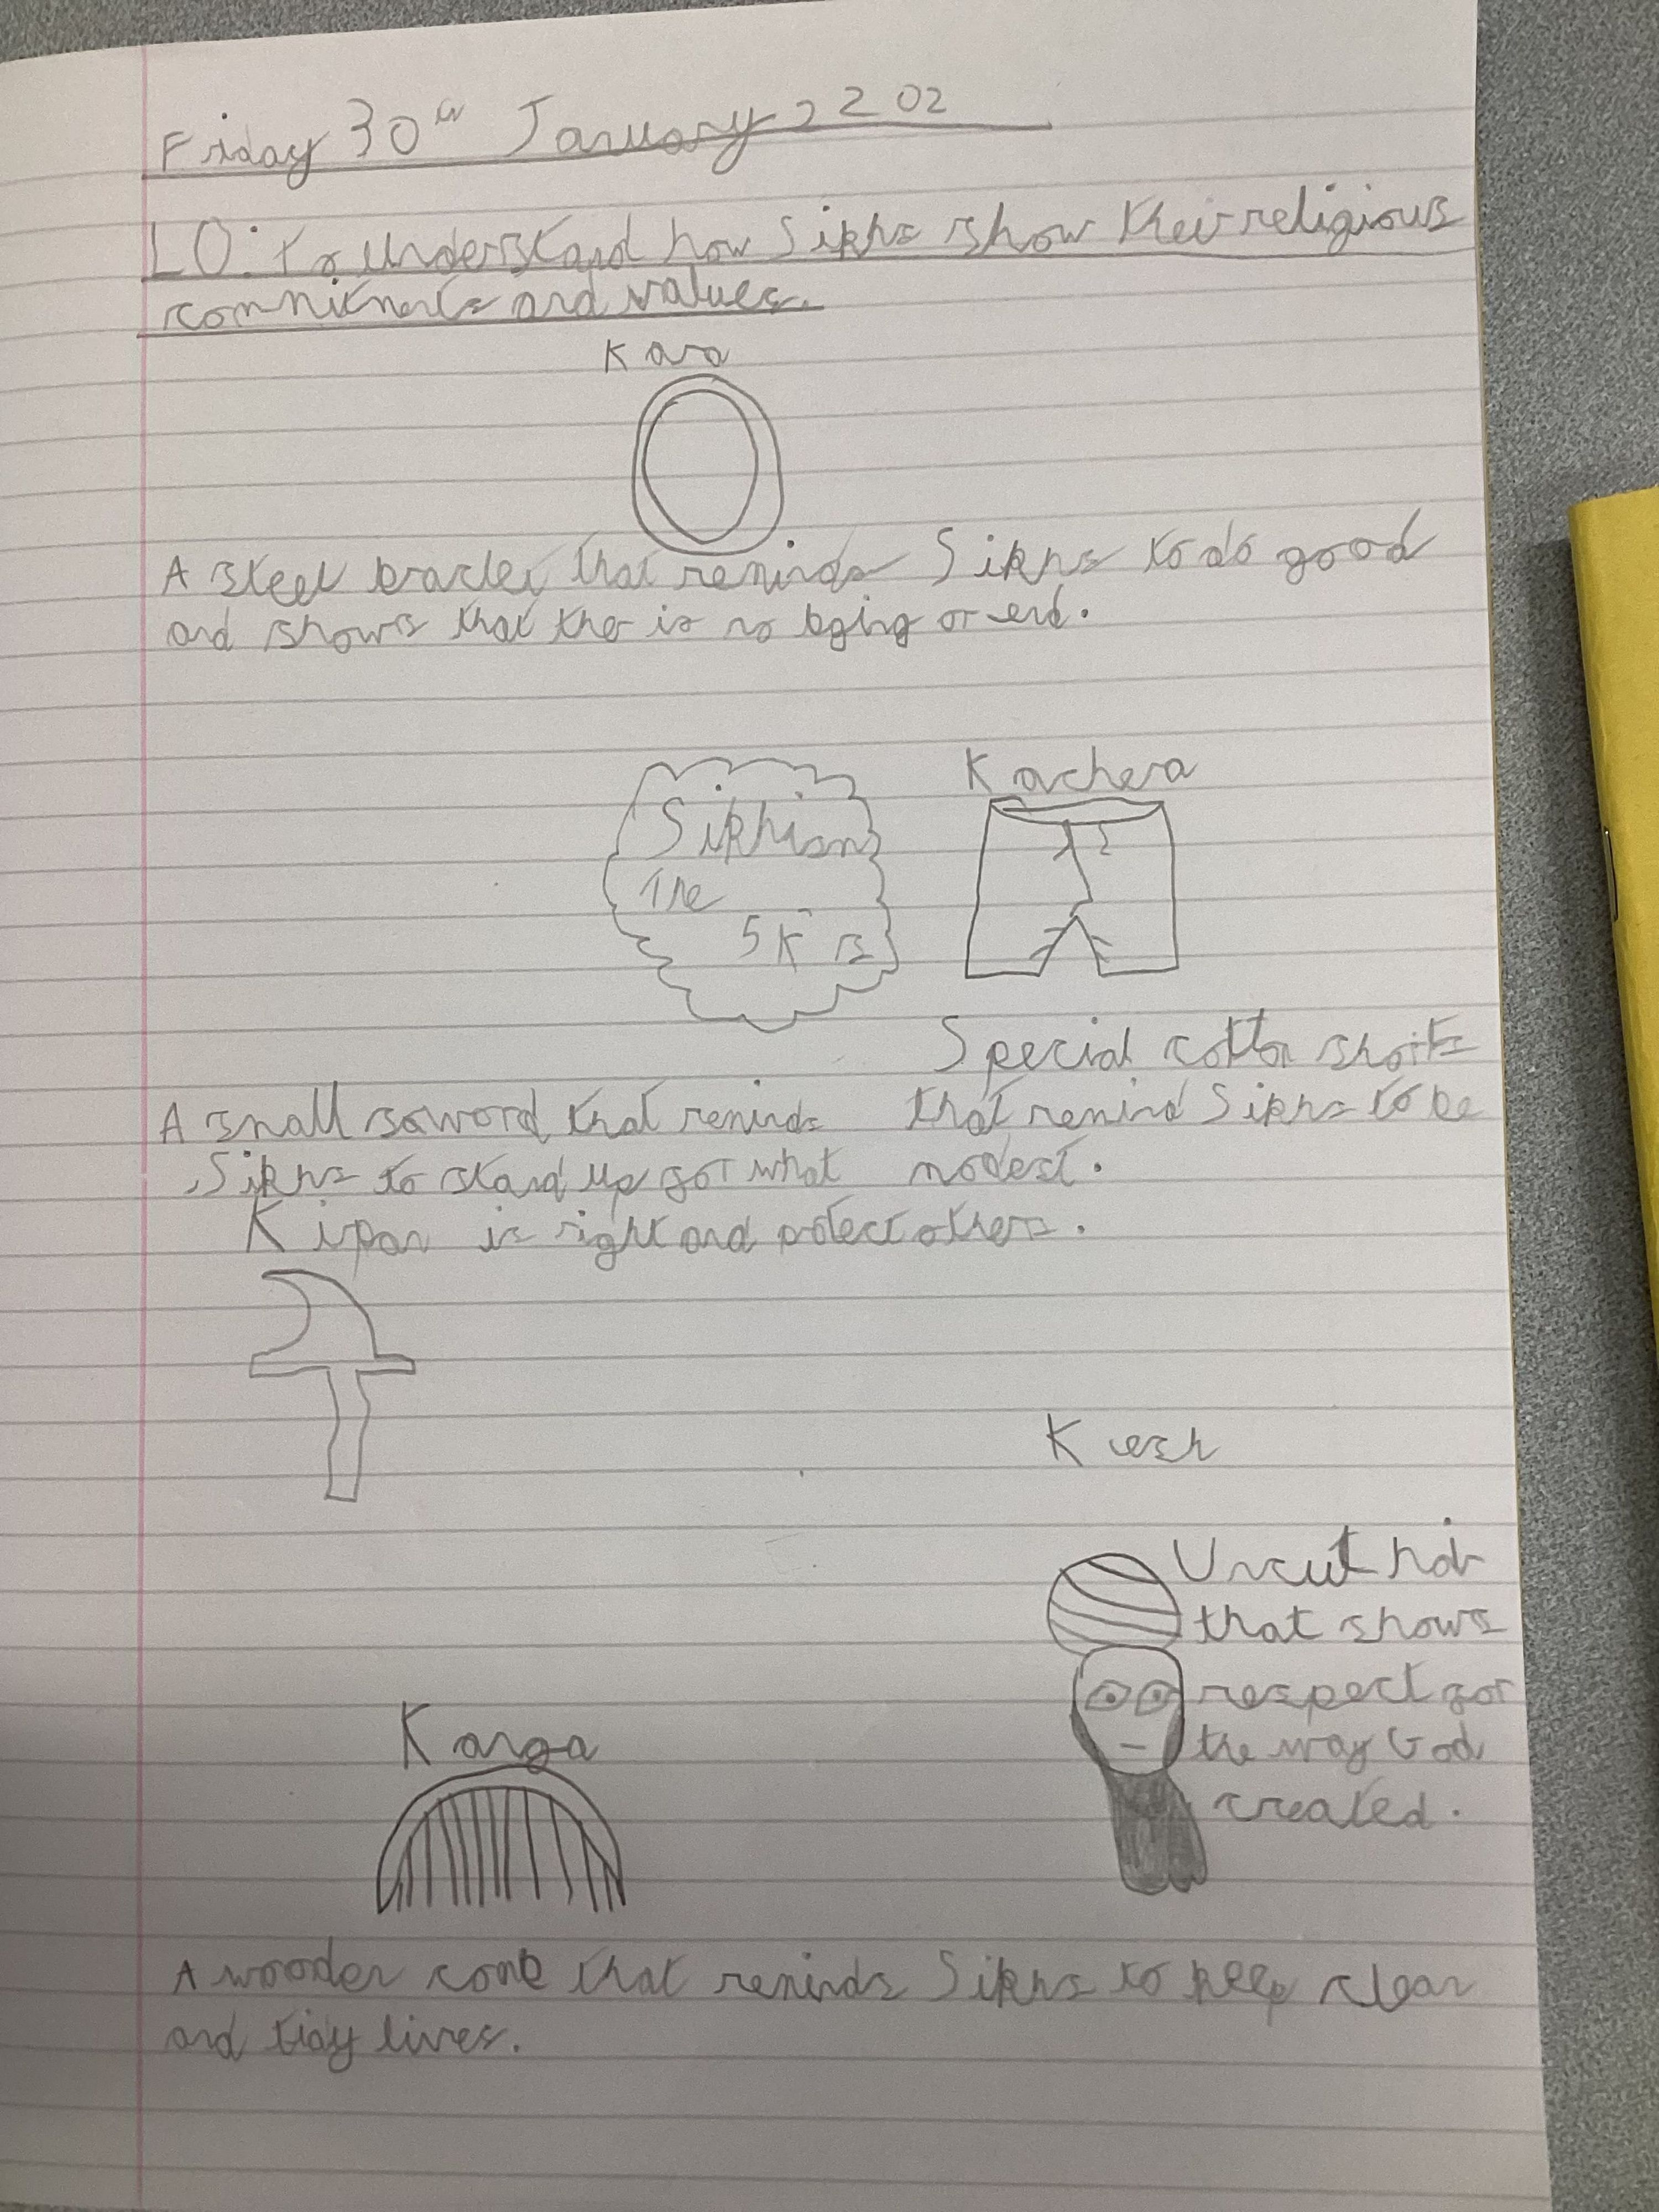 Friday 30th January 2202
LO: To understand how Sikhs show their religious
commitments and values.
Kara
A steel braclet that reminds Sikhs to do good
and shows that ther is no bging or end.
Sikhism
The
5K's
Kachera
Special cotton shorts
that remind Sikhs to be
modest.
A small soword that reminds
Sikhs to stand up for what
is right and protect others.
Kipan
Kesh
Uncut hair
that shows
respect for
the way God
created.
Kanga
A wooden comb that reminds Sikhs to keep clean
and tidy lives.